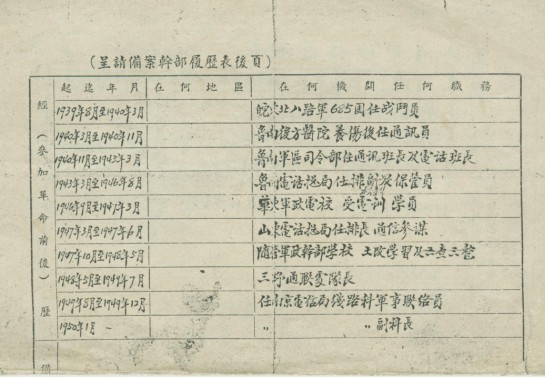 (呈請備案幹部履歷表後頁)
起迄年月 在何地區 在何機關任何職務
經(參加革命前後)歷
1939年8月至1940年3月 皖东北八路軍685团任战鬥員
1940年3月至1940年11月 魯南後方醫院 養傷後任通訊員
1940年11月至1943年3月 魯南軍區司令部任通訊班長及電話班長
1943年3月至1946年8月 魯南電話总局任排 保管員
1946年9月至1947年3月 華东軍政電校 受電訓 学員
1947年3月至1947年6月 山东電話总局任排長 通信参謀
1947年10月至1948年5月 随营軍政幹部学校 工政学習及三查三整
1948年5月至1949年7月 三野通联 隊長
1949年8月至1949年12月 任南京電話局线路科軍事联络員
1950年1月 - 〃 〃 副科長
備